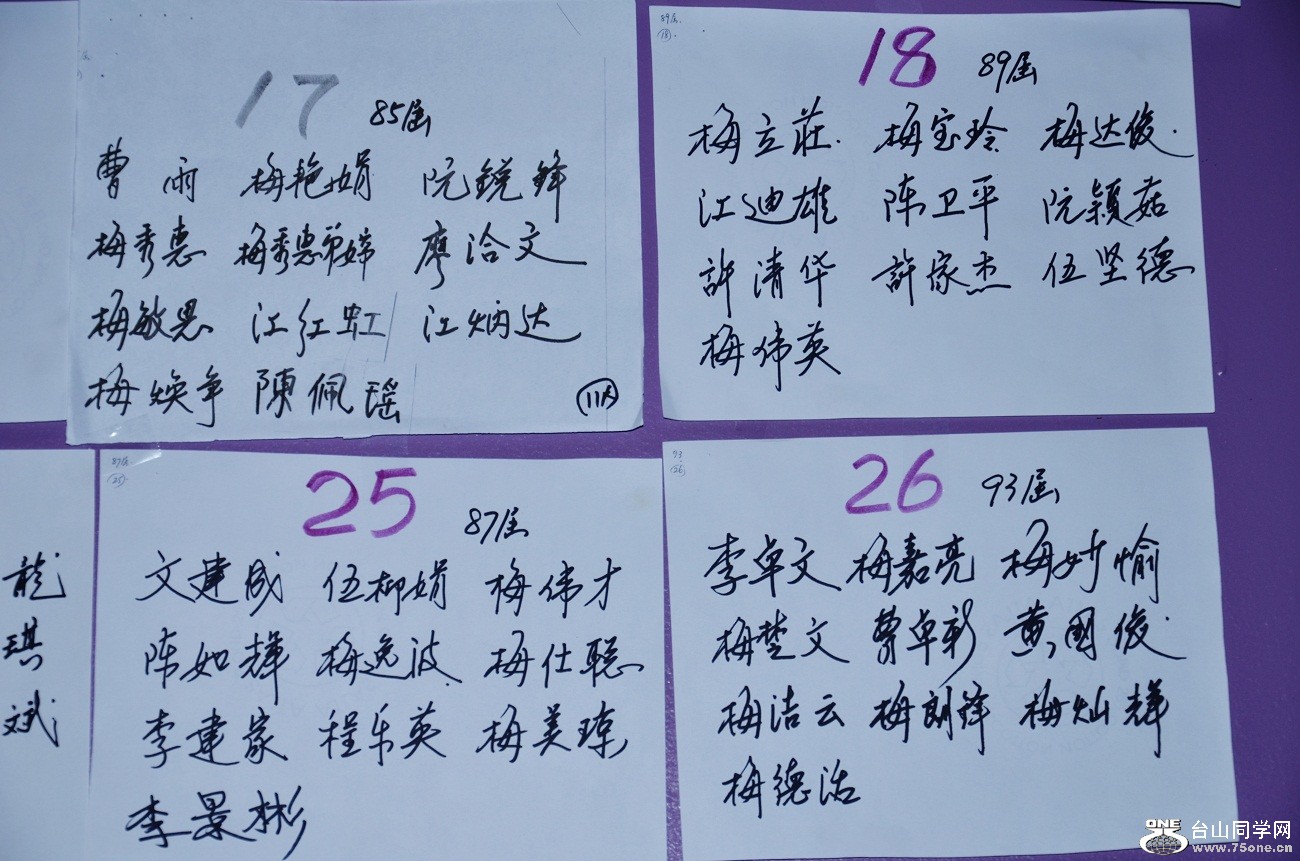 17 85届
曹雨 梅艳娟 阮銳鋒
梅秀惠 梅秀惠弟婦 廖治文
梅敏恩 江红虹 江炳达
梅焕争 陳佩瑶
11人
89届
(18)
18 89届
梅立莊 梅宝玲 梅达俊
江迪雄 陈卫平 阮颖菇
許清华 許家杰 伍坚德
梅伟英
龍
琪
斌
87届
(25)
25 87届
文建成 伍柳娟 梅伟才
陈如輝 梅逸波 梅仕聪
李建家 程乐英 梅美琼
李景彬
93
(26)
26 93届
李卓文 梅嘉亮 梅妙愉
梅楚文 曹卓彩 黄國俊
梅洁云 梅朗鋒 梅灿輝
梅德活
ONE 台山同学网
www.75one.cn